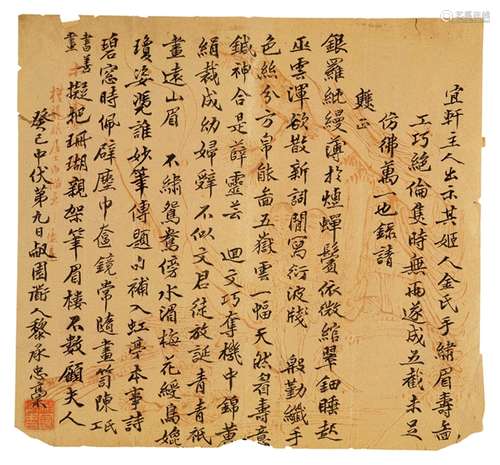 宜軒主人出示其姬人金氏手繡眉壽圖
工巧絕倫異時無兩遂成五截未足
仿佛萬一也錄請
正
銀羅紕縵薄於煙蟬鬢依微綰翠鈿睡起
巫雲渾欲散新詞閒寫衍波牋 殷勤纖手
色絲分方帛能圖五嶽雲幅天然眉壽意
鍼神合是薛靈芸 迴文巧奪機中錦黃
絹裁成幼婦辭 不似文君徒放誕青青祇
畫遠山眉 不繡鴛鴦傍水湄梅花綬鳥媲
瓊姿憑誰妙筆傳題句補入虹亭本事詩
碧窗時佩辟塵巾奩鏡常隨畫笥陳 氏工
書善畫 擬把珊瑚親架筆眉樓不數顧夫人
癸巳中伏第九日叔園人黎承忠稾